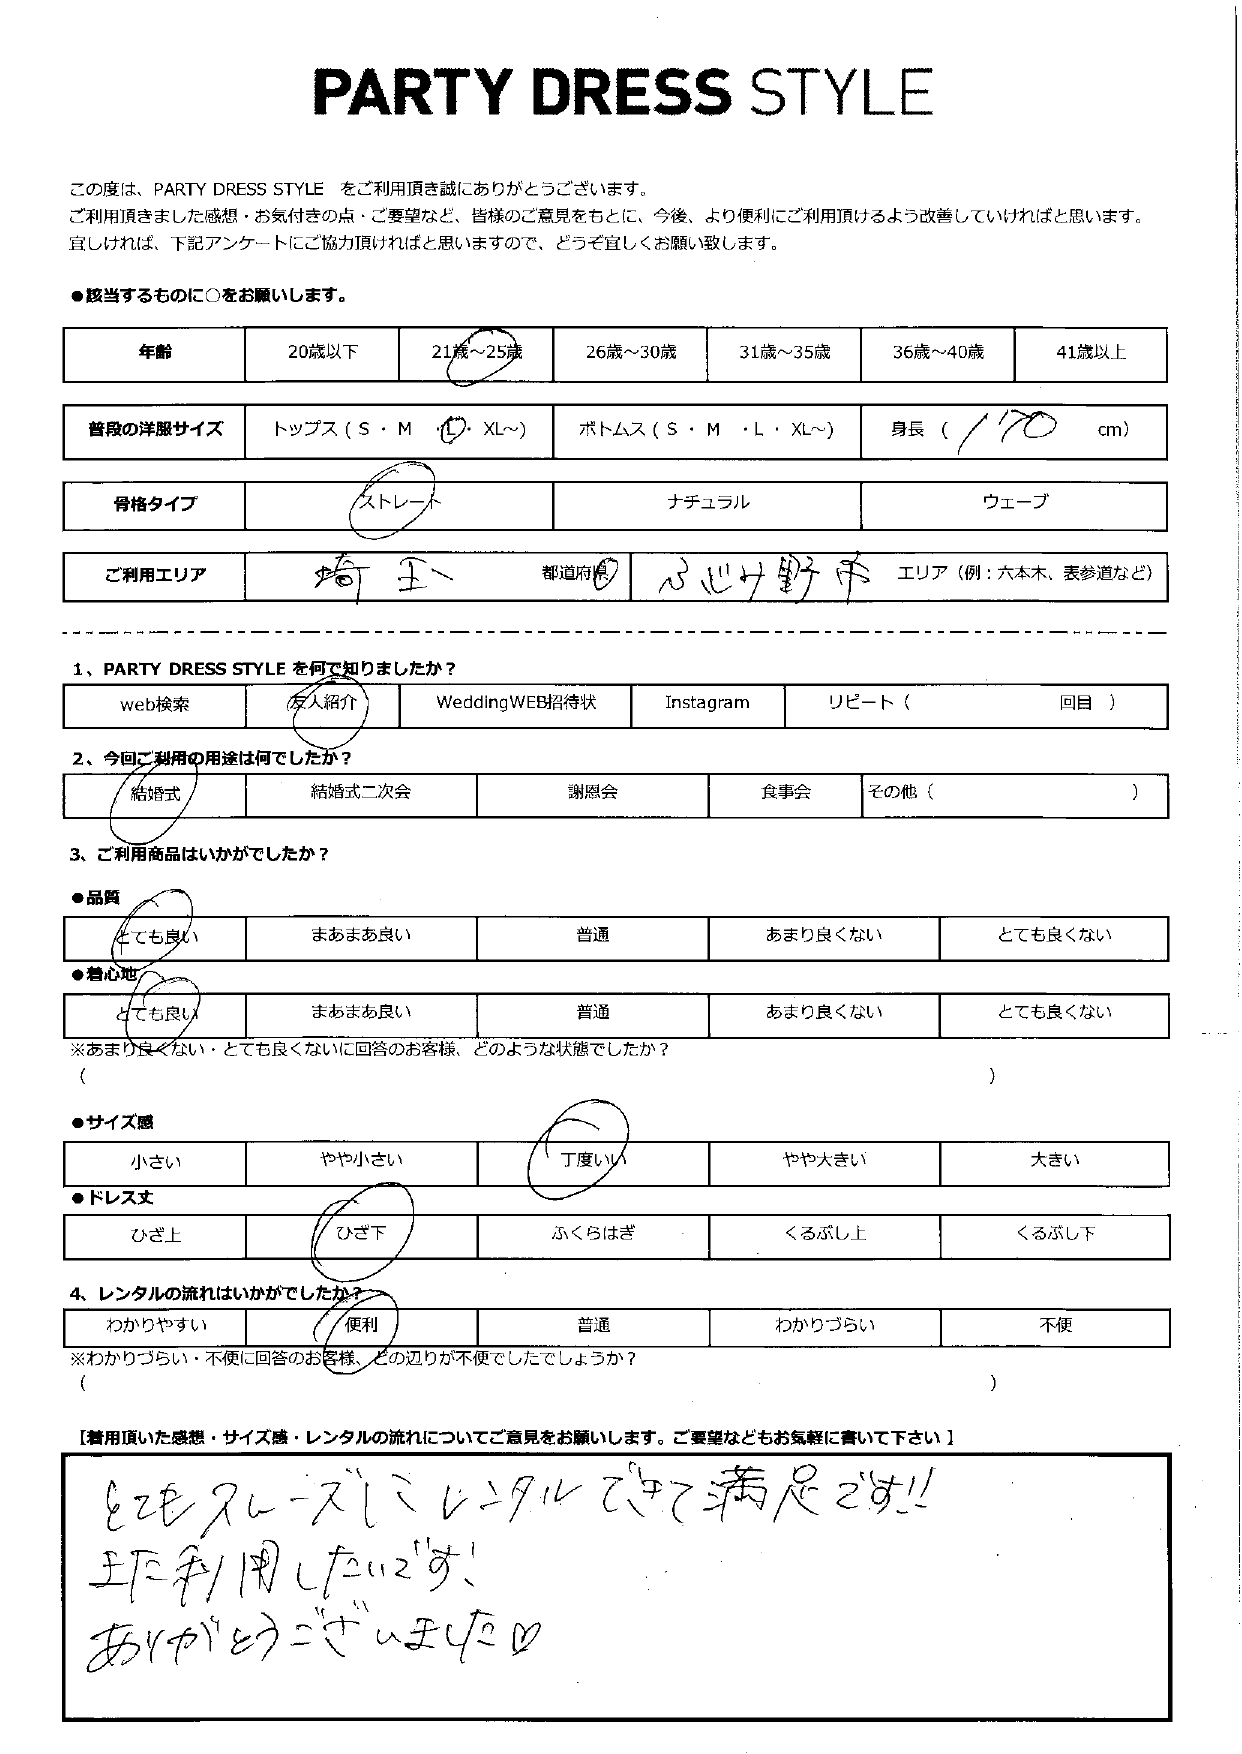 PARTY DRESS STYLE
この度は、PARTY DRESS STYLE をご利用頂き誠にありがとうございます。
ご利用頂きました感想・お気付きの点・ご要望など、皆様のご意見をもとに、今後、より便利にご利用頂けるよう改善していければと思います。
宜しければ、下記アンケートにご協力頂ければと思いますので、どうぞ宜しくお願い致します。
●該当するものに○をお願いします。
年齢 20歳以下 21歳～25歳 26歳～30歳 31歳～35歳 36歳～40歳 41歳以上
普段の洋服サイズ トップス ( S ・ M ・L・ XL～) ボトムス ( S ・ M ・L ・ XL～) 身長 ( 170 cm)
骨格タイプ ストレート ナチュラル ウェーブ
ご利用エリア 埼玉 都道府県 ふじみ野市 エリア（例：六本木、表参道など）
1、PARTY DRESS STYLE を何で知りましたか？
web検索 友人紹介 WeddingWEB招待状 Instagram リピート（ 回目 ）
2、今回ご利用の用途は何でしたか？
結婚式 結婚式二次会 謝恩会 食事会 その他（ ）
3、ご利用商品はいかがでしたか？
●品質
とても良い まあまあ良い 普通 あまり良くない とても良くない
●着心地
とても良い まあまあ良い 普通 あまり良くない とても良くない
※あまり良くない・とても良くないに回答のお客様、どのような状態でしたか？
( )
●サイズ感
小さい やや小さい 丁度いい やや大きい 大きい
●ドレス丈
ひざ上 ひざ下 ふくらはぎ くるぶし上 くるぶし下
4、レンタルの流れはいかがでしたか？
わかりやすい 便利 普通 わかりづらい 不便
※わかりづらい・不便に回答のお客様、どの辺りが不便でしたでしょうか？
( )
【着用頂いた感想・サイズ感・レンタルの流れについてご意見をお願いします。ご要望などもお気軽に書いて下さい】
とてもスムーズにレンタルできて満足です!!
また利用したいです!
ありがとうございました♡